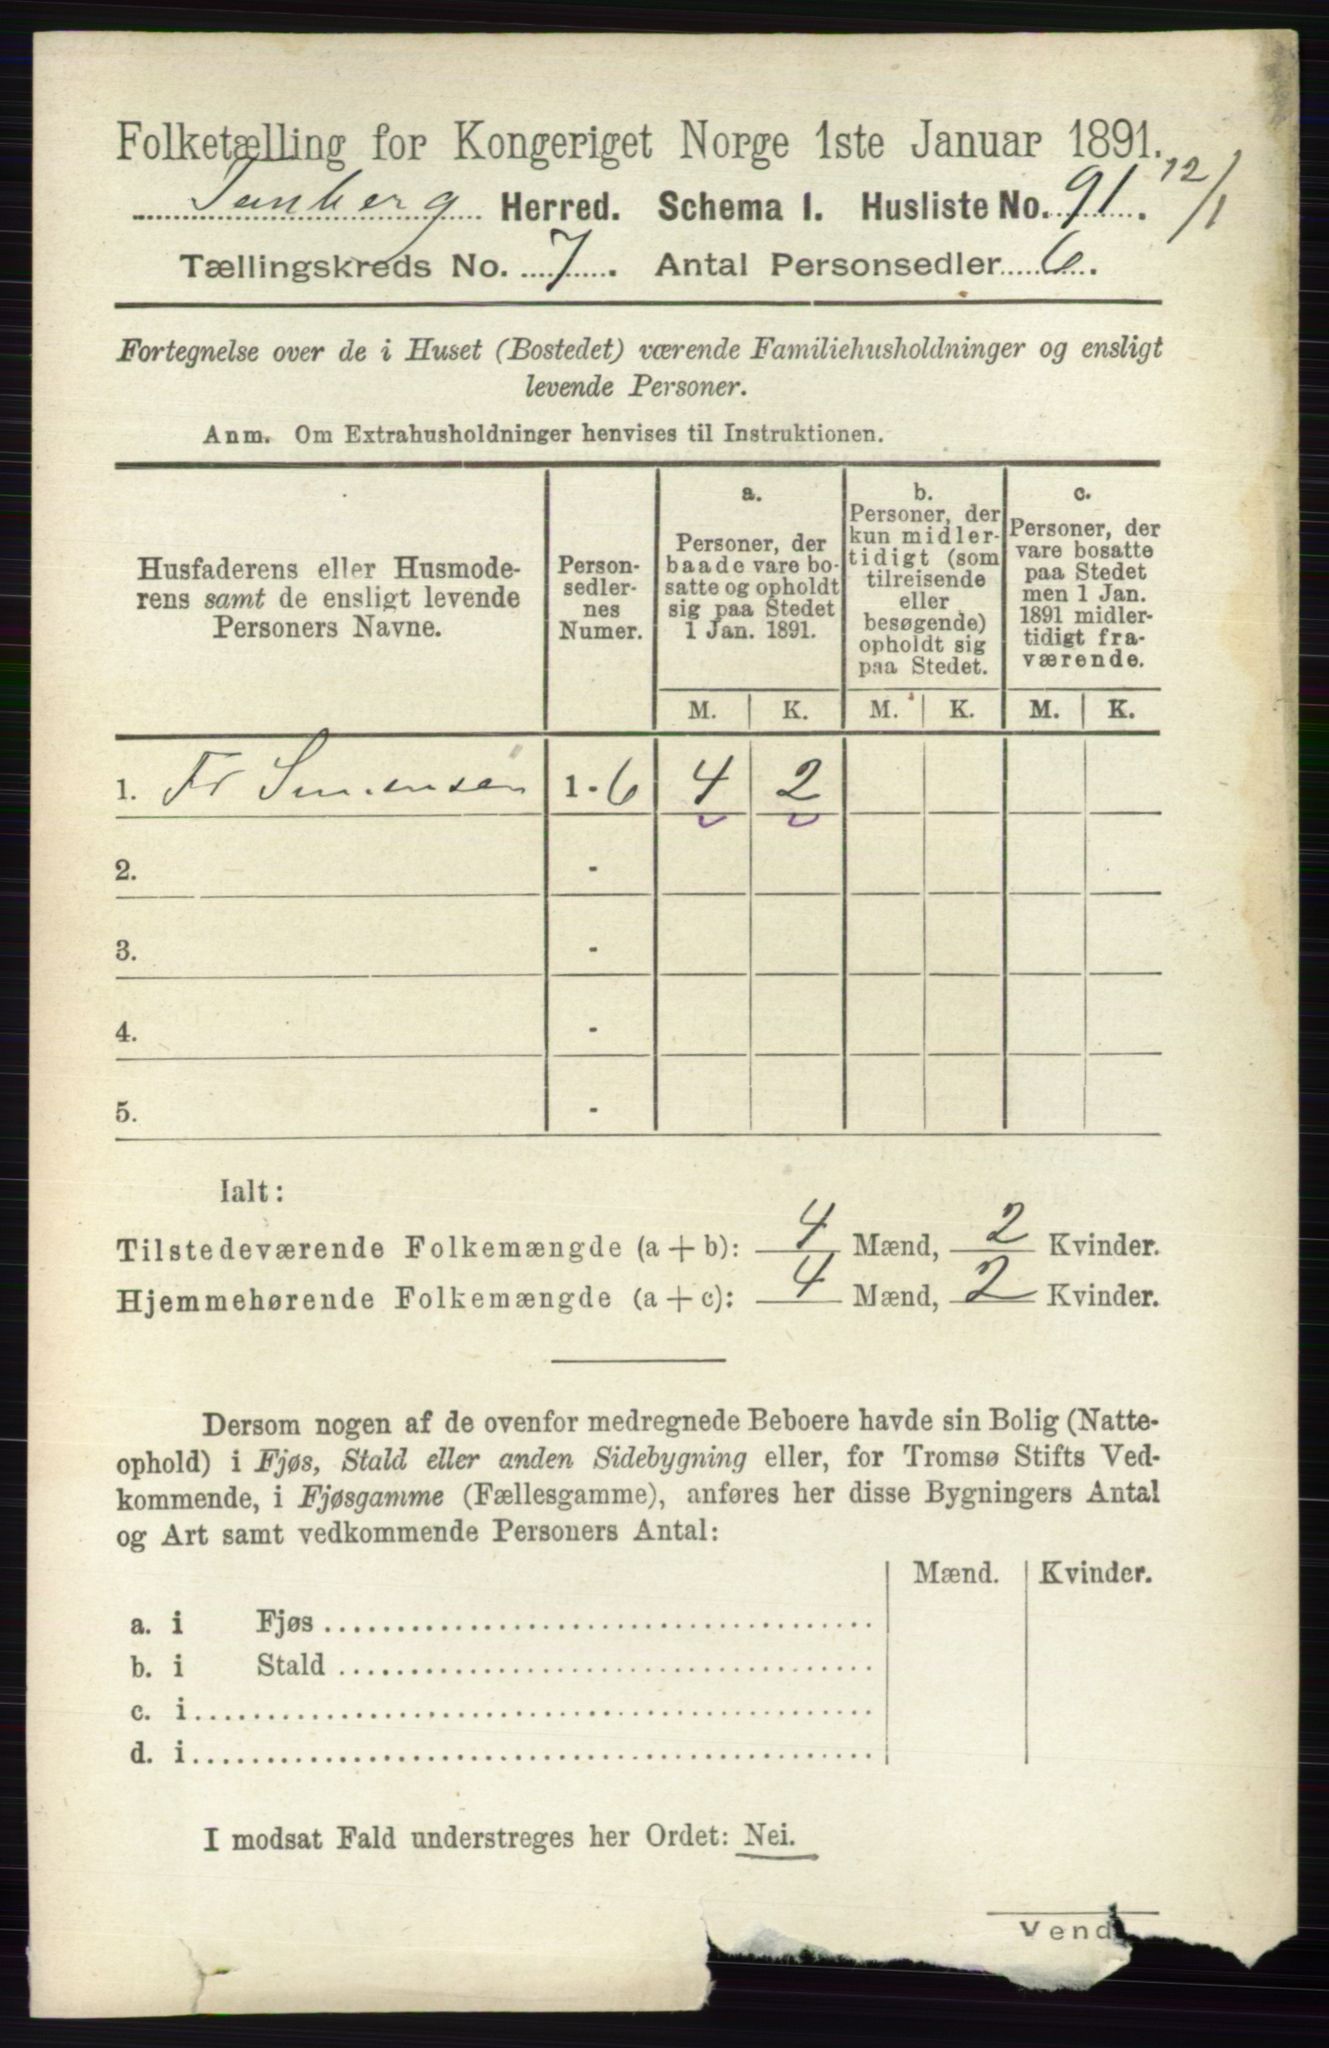 Folketælling for Kongeriget Norge 1ste Januar 1891.
12/1
Herred. Schema I. Husliste No. 91.
Tællingskreds No. 7. Antal Personsedler 6.
Fortegnelse over de i Huset (Bostedet) værende Familiehusholdninger og ensligt
levende Personer.
Anm. Om Extrahusholdninger henvises til Instruktionen.
Husfaderens eller Husmode-
rens samt de ensligt levende
Personers Navne.
Person-
sedler-
nes
Numer.
a.
Personer, der
baade vare bo-
satte og opholdt
sig paa Stedet
1 Jan. 1891.
b.
Personer, der
kun midler-
tidigt (som
tilreisende
eller
besøgende)
opholdt sig
paa Stedet.
c.
Personer, der
vare bosatte
paa Stedet
men 1 Jan.
1891 midler-
tidigt fra-
værende.
M. K. M. K. M. K.
1. Fr 1 - 6 4 2
2. -
3. -
4. -
5. -
Ialt:
Tilstedeværende Folkemængde (a + b): 4 Mænd, 2 Kvinder.
Hjemmehørende Folkemængde (a + c): 4 Mænd, 2 Kvinder.
Dersom nogen af de ovenfor medregnede Beboere havde sin Bolig (Natte-
ophold) i Fjøs, Stald eller anden Sidebygning eller, for Tromsø Stifts Ved-
kommende, i Fjøsgamme (Fællesgamme), anføres her disse Bygningers Antal
og Art samt vedkommende Personers Antal:
Mænd. Kvinder.
a. i Fjøs
b. i Stald
c. i
d. i
I modsat Fald understreges her Ordet: Nei.
Vend